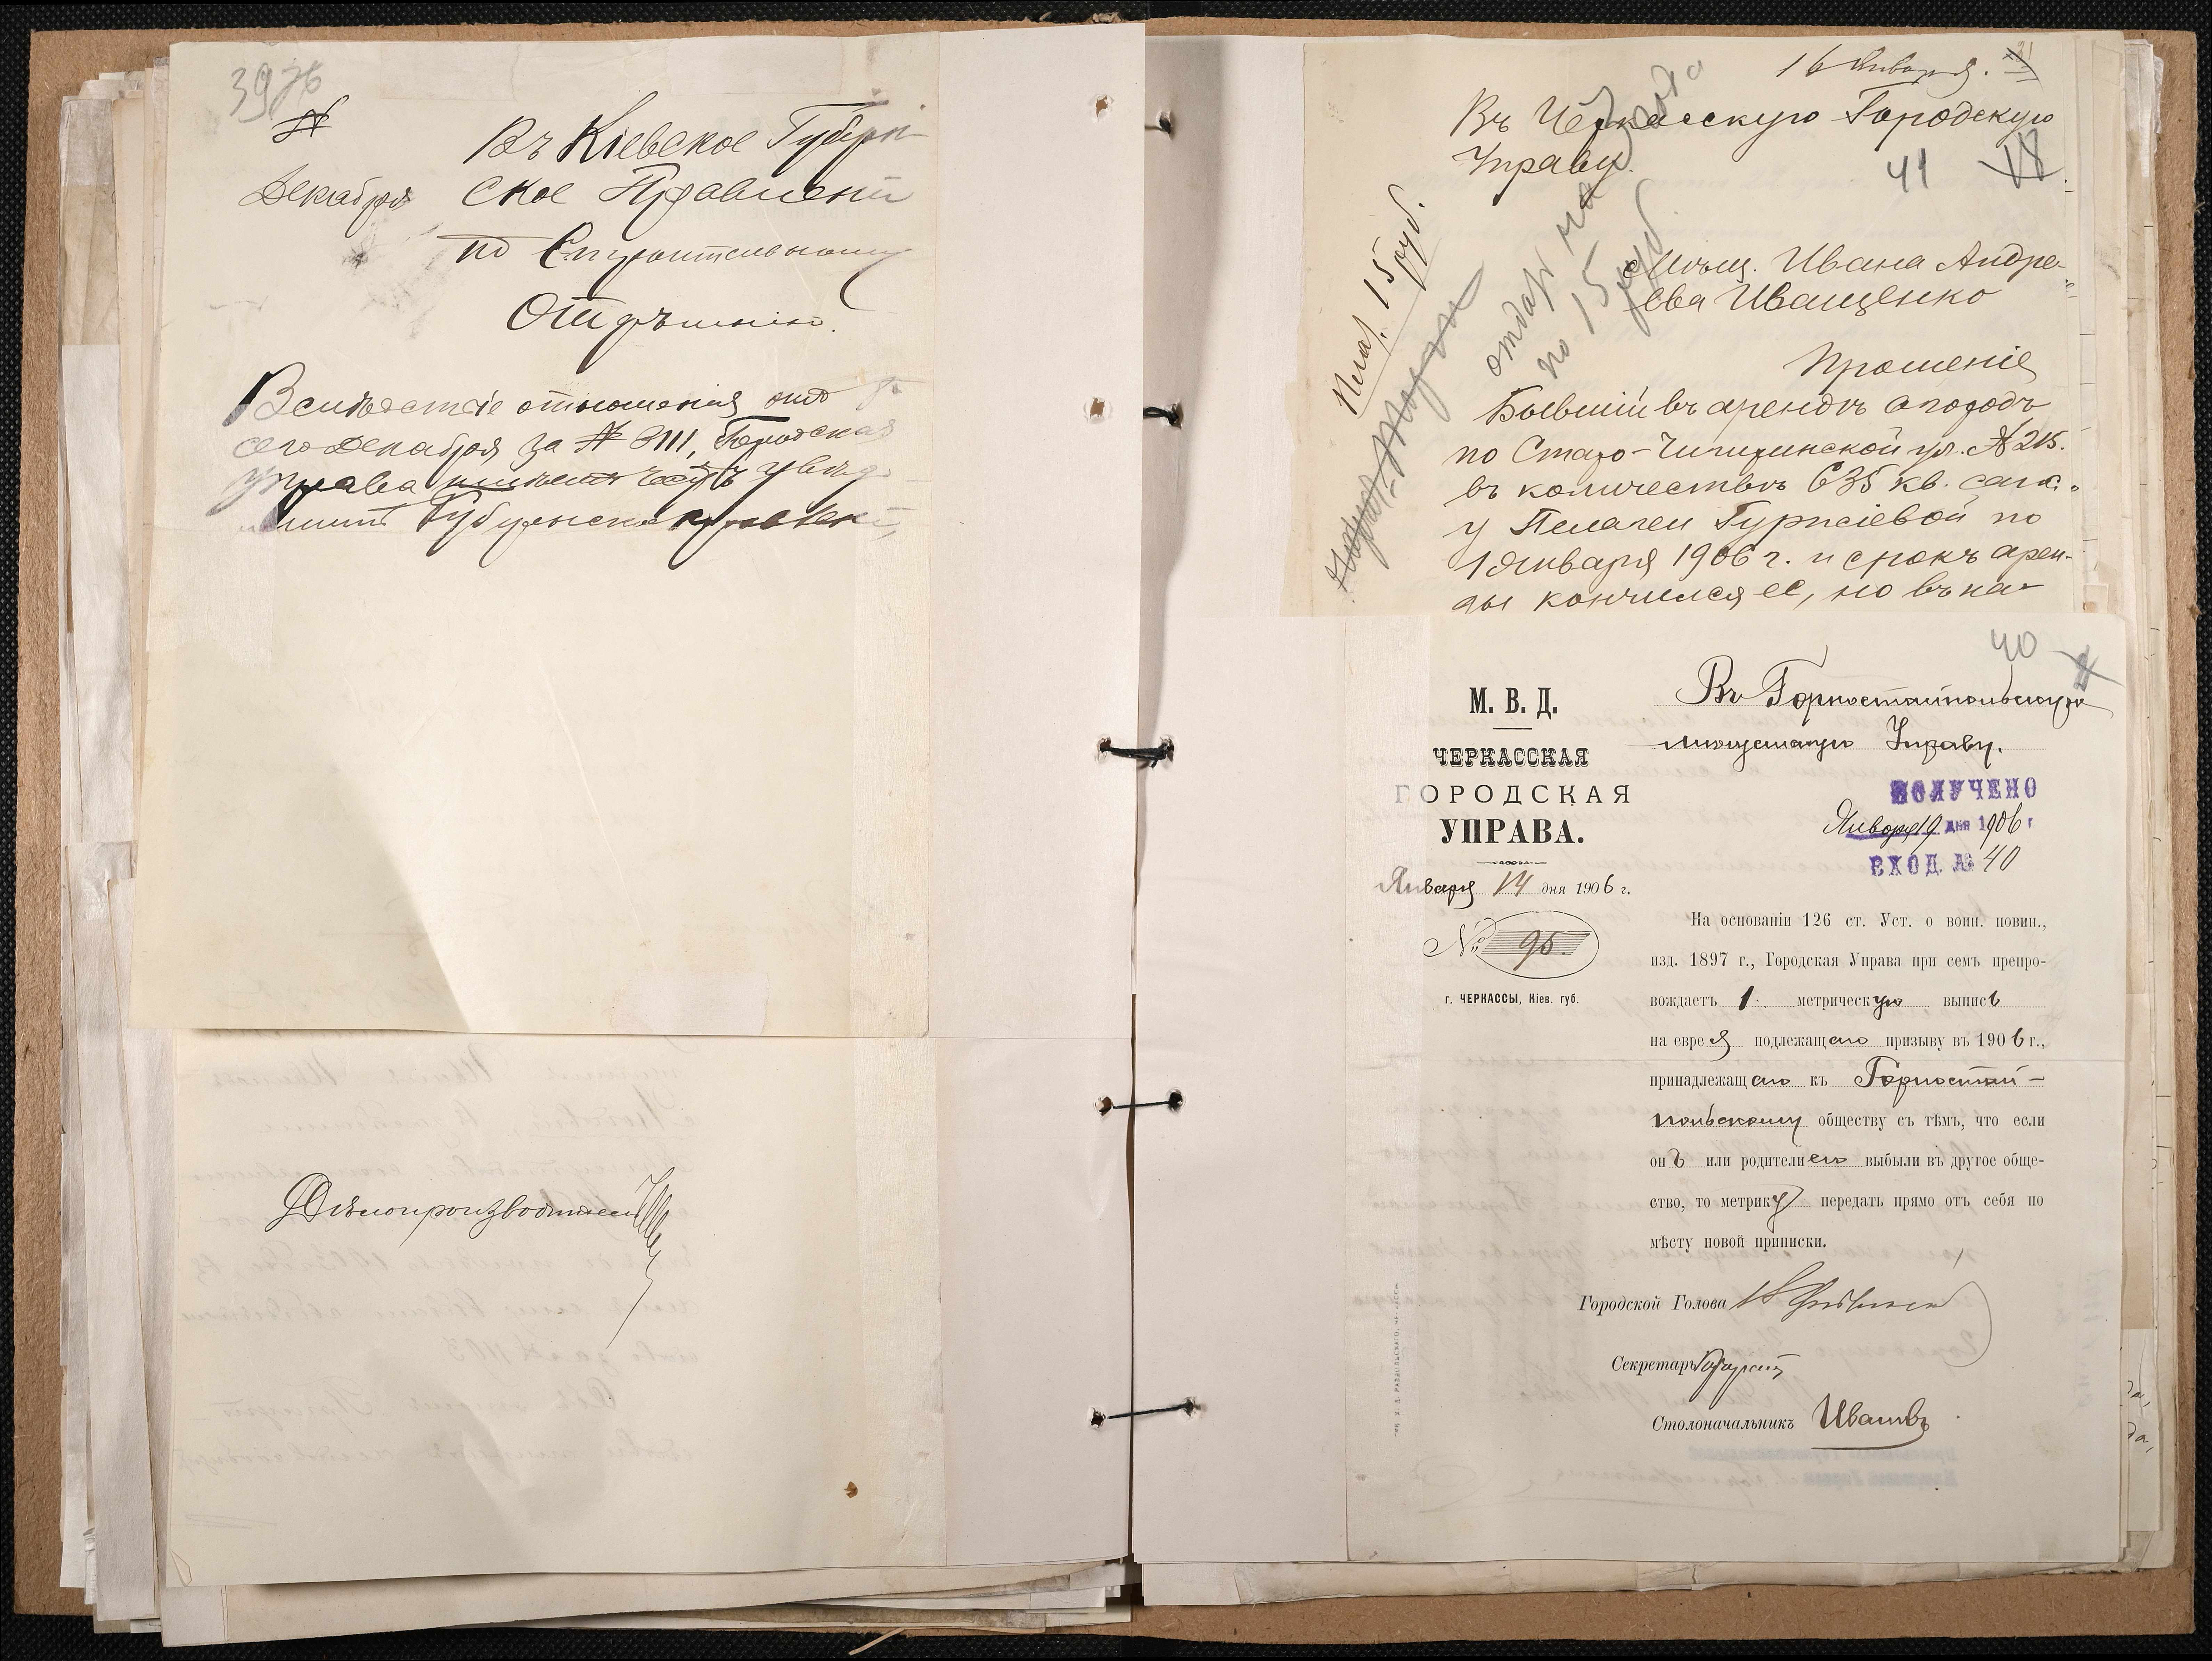 39
№
Декабря
Въ Кіевское Губерн-
ское Правлені
по Строительному
Отдѣленію.
Вслѣдствіе отношенія отъ
сего Декабря за № 3111, Городская
Управа имѣетъ честь увѣд-
Губернско Правлені,
Дѣлопроизводитель
16 Января.
Въ Черкасскую Городскую
Управу.
41
Мѣщ. Ивана Андре-
ева Иващенко
15 руб.
отдать на
по 15 руб.
Прошеніе
Бывшій въ арендѣ огородъ
по Старо-Чигиринской ул. № 215.
въ количествѣ 635 кв. саж.
у Пелагеи по
1 Января 1906 г. и срокъ арен-
ды кончился ее, но въ на-
40
М. В. Д.
ЧЕРКАССКАЯ
ГОРОДСКАЯ
УПРАВА.
Января 14 дня 1906 г.
№ 95.
г. ЧЕРКАССЫ, Кіев. губ.
Въ Горностайпольскую
мѣщанскую Управу.
ПОЛУЧЕНО
Января 19 дня 1906 г
ВХОД. № 40
На основаніи 126 ст. Уст. о воин. повин.,
изд. 1897 г., Городская Управа при семъ препро-
вождаетъ 1 метрическую выпись
на еврея подлежащаго призыву въ 1906 г.,
принадлежащаго къ Горностай-
польскому обществу съ тѣмъ, что если
онъ или родители его выбыли въ другое обще-
ство, то метрику передать прямо отъ себя по
мѣсту новой приписки.
Городской Голова
Секретарь
Столоначальникъ Ивановъ